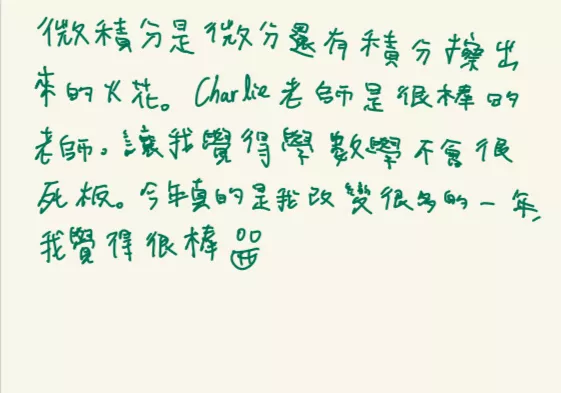 微積分是微分還有積分擦出
來的火花。Charlie老師是很棒的
老師。讓我覺得學數學不會很
死板。今年真的是我改變很多的一年,
我覺得很棒